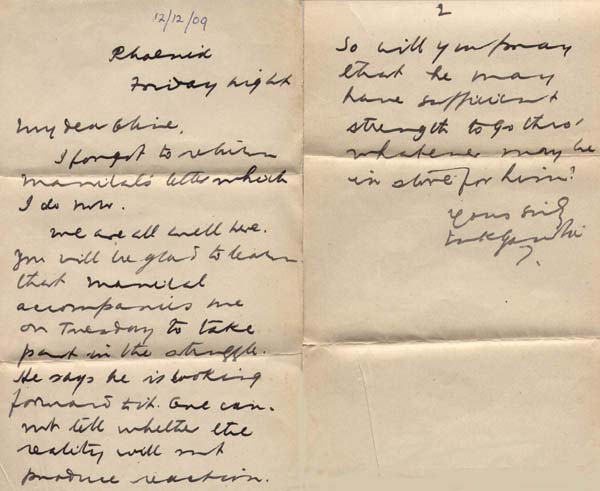 12/12/09
Phoenix
Friday night
My dear Olive,
I forgot to return
Manilal's letter which
I do now.
We are all well here.
You will be glad to learn
that Manilal
accompanies me
on Tuesday to take
part in the struggle.
He says he is looking
forward to it. One can-
not tell whether the
reality will not
produce reaction.
2
So will you pray
that he may
have sufficient
strength to go thro'
whatever may be
in store for him?
Yours sincly
MKGandhi